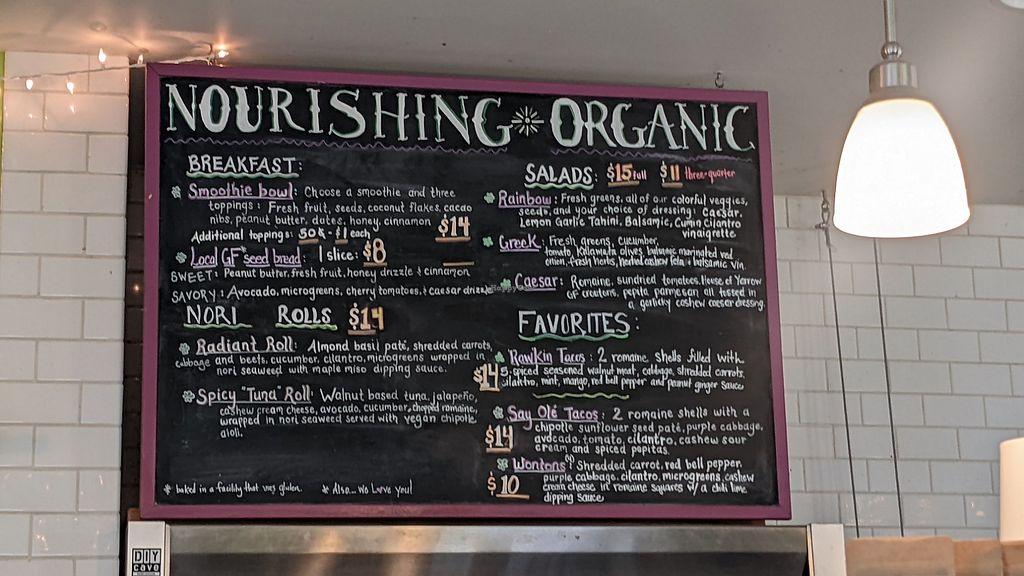 NOURISHING ORGANIC
BREAKFAST:
Smoothie bowl: Choose a smoothie and three
toppings: Fresh fruit, seeds, coconut flakes, cacao
nibs, peanut butter, dates, honey, cinnamon $14
Additional toppings: 50¢ - $1 each
Local GF* seed bread: 1 slice: $8
SWEET: Peanut butter, fresh fruit, honey drizzle & cinnamon
SAVORY: Avocado, microgreens, cherry tomatoes, & caesar drizzle
NORI ROLLS $14
Radiant Roll: Almond basil paté, shredded carrots,
cabbage and beets, cucumber, cilantro, microgreens wrapped in
nori seaweed with maple miso dipping sauce.
Spicy "Tuna" Roll: Walnut based tuna, jalapeño,
cashew cream cheese, avocado, cucumber, chopped romaine,
wrapped in nori seaweed served with vegan chipotle
aioli.
* baked in a facility that uses gluten. * Also... we love you!
SALADS: $15 full $11 three-quarter
Rainbow: Fresh greens, all of our colorful veggies,
seeds, and your choice of dressing: Caesar,
Lemon Garlic Tahini, Balsamic, Cumin Cilantro
vinaigrette
Greek: Fresh greens, cucumber,
tomato, Kalamata olives, balsamic marinated red
onion, fresh herbs, herbed cashew feta + balsamic vin.
Caesar: Romaine, sundried tomatoes, House of Yarrow
GF croutons, pepita parmesan, all tossed in
a garlicky cashew caesar dressing.
FAVORITES:
Rawkin Tacos: 2 romaine shells filled with
$14 spiced seasoned walnut meat, cabbage, shredded carrots,
cilantro, mint, mango, red bell pepper and peanut ginger sauce
Say Olé Tacos: 2 romaine shells with a
chipotle sunflower seed paté, purple cabbage,
$14 avocado, tomato, cilantro, cashew sour
cream and spiced pepitas.
Wontons: Shredded carrot, red bell pepper,
$10 purple cabbage, cilantro, microgreens, cashew
cream cheese, in romaine squares w/ a chili lime
dipping sauce
DIY
cave